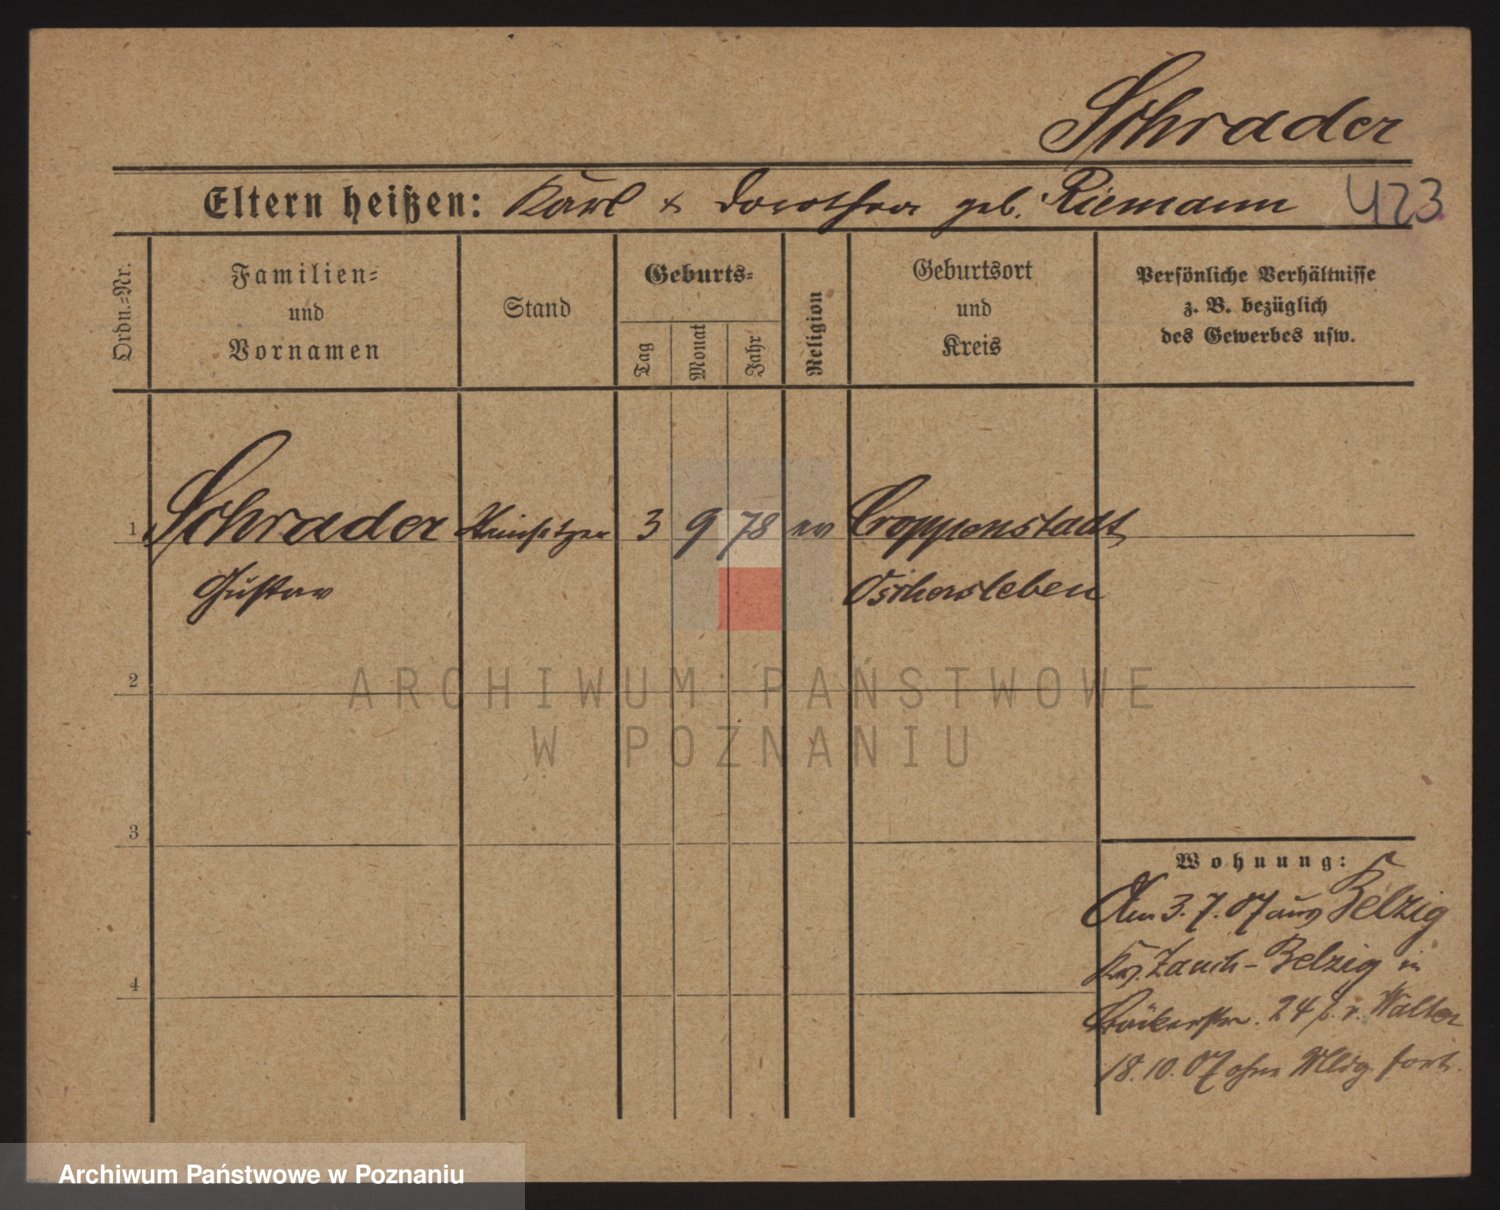 Schrader
Eltern heißen: Karl & Dorothea geb. Riemann 423
Ordn.-Nr.
Familien-
und
Vornamen
Stand
Geburts-
Tag
Monat
Jahr
Religion
Geburtsort
und
Kreis
Persönliche Verhältnisse
z. B. bezüglich
des Gewerbes usw.
1 Schrader Steinsetzer 3 9 78 ev Croppenstadt
Gustav Oschersleben
2
ARCHIWUM PAŃSTWOWE
W POZNANIU
3
Wohnung:
Am 3.7.07 aus Belzig
Krs. Zauch-Belzig in
24 b. v. Walter
18.10.07 ohne Mldg. fort.
4
Archiwum Państwowe w Poznaniu